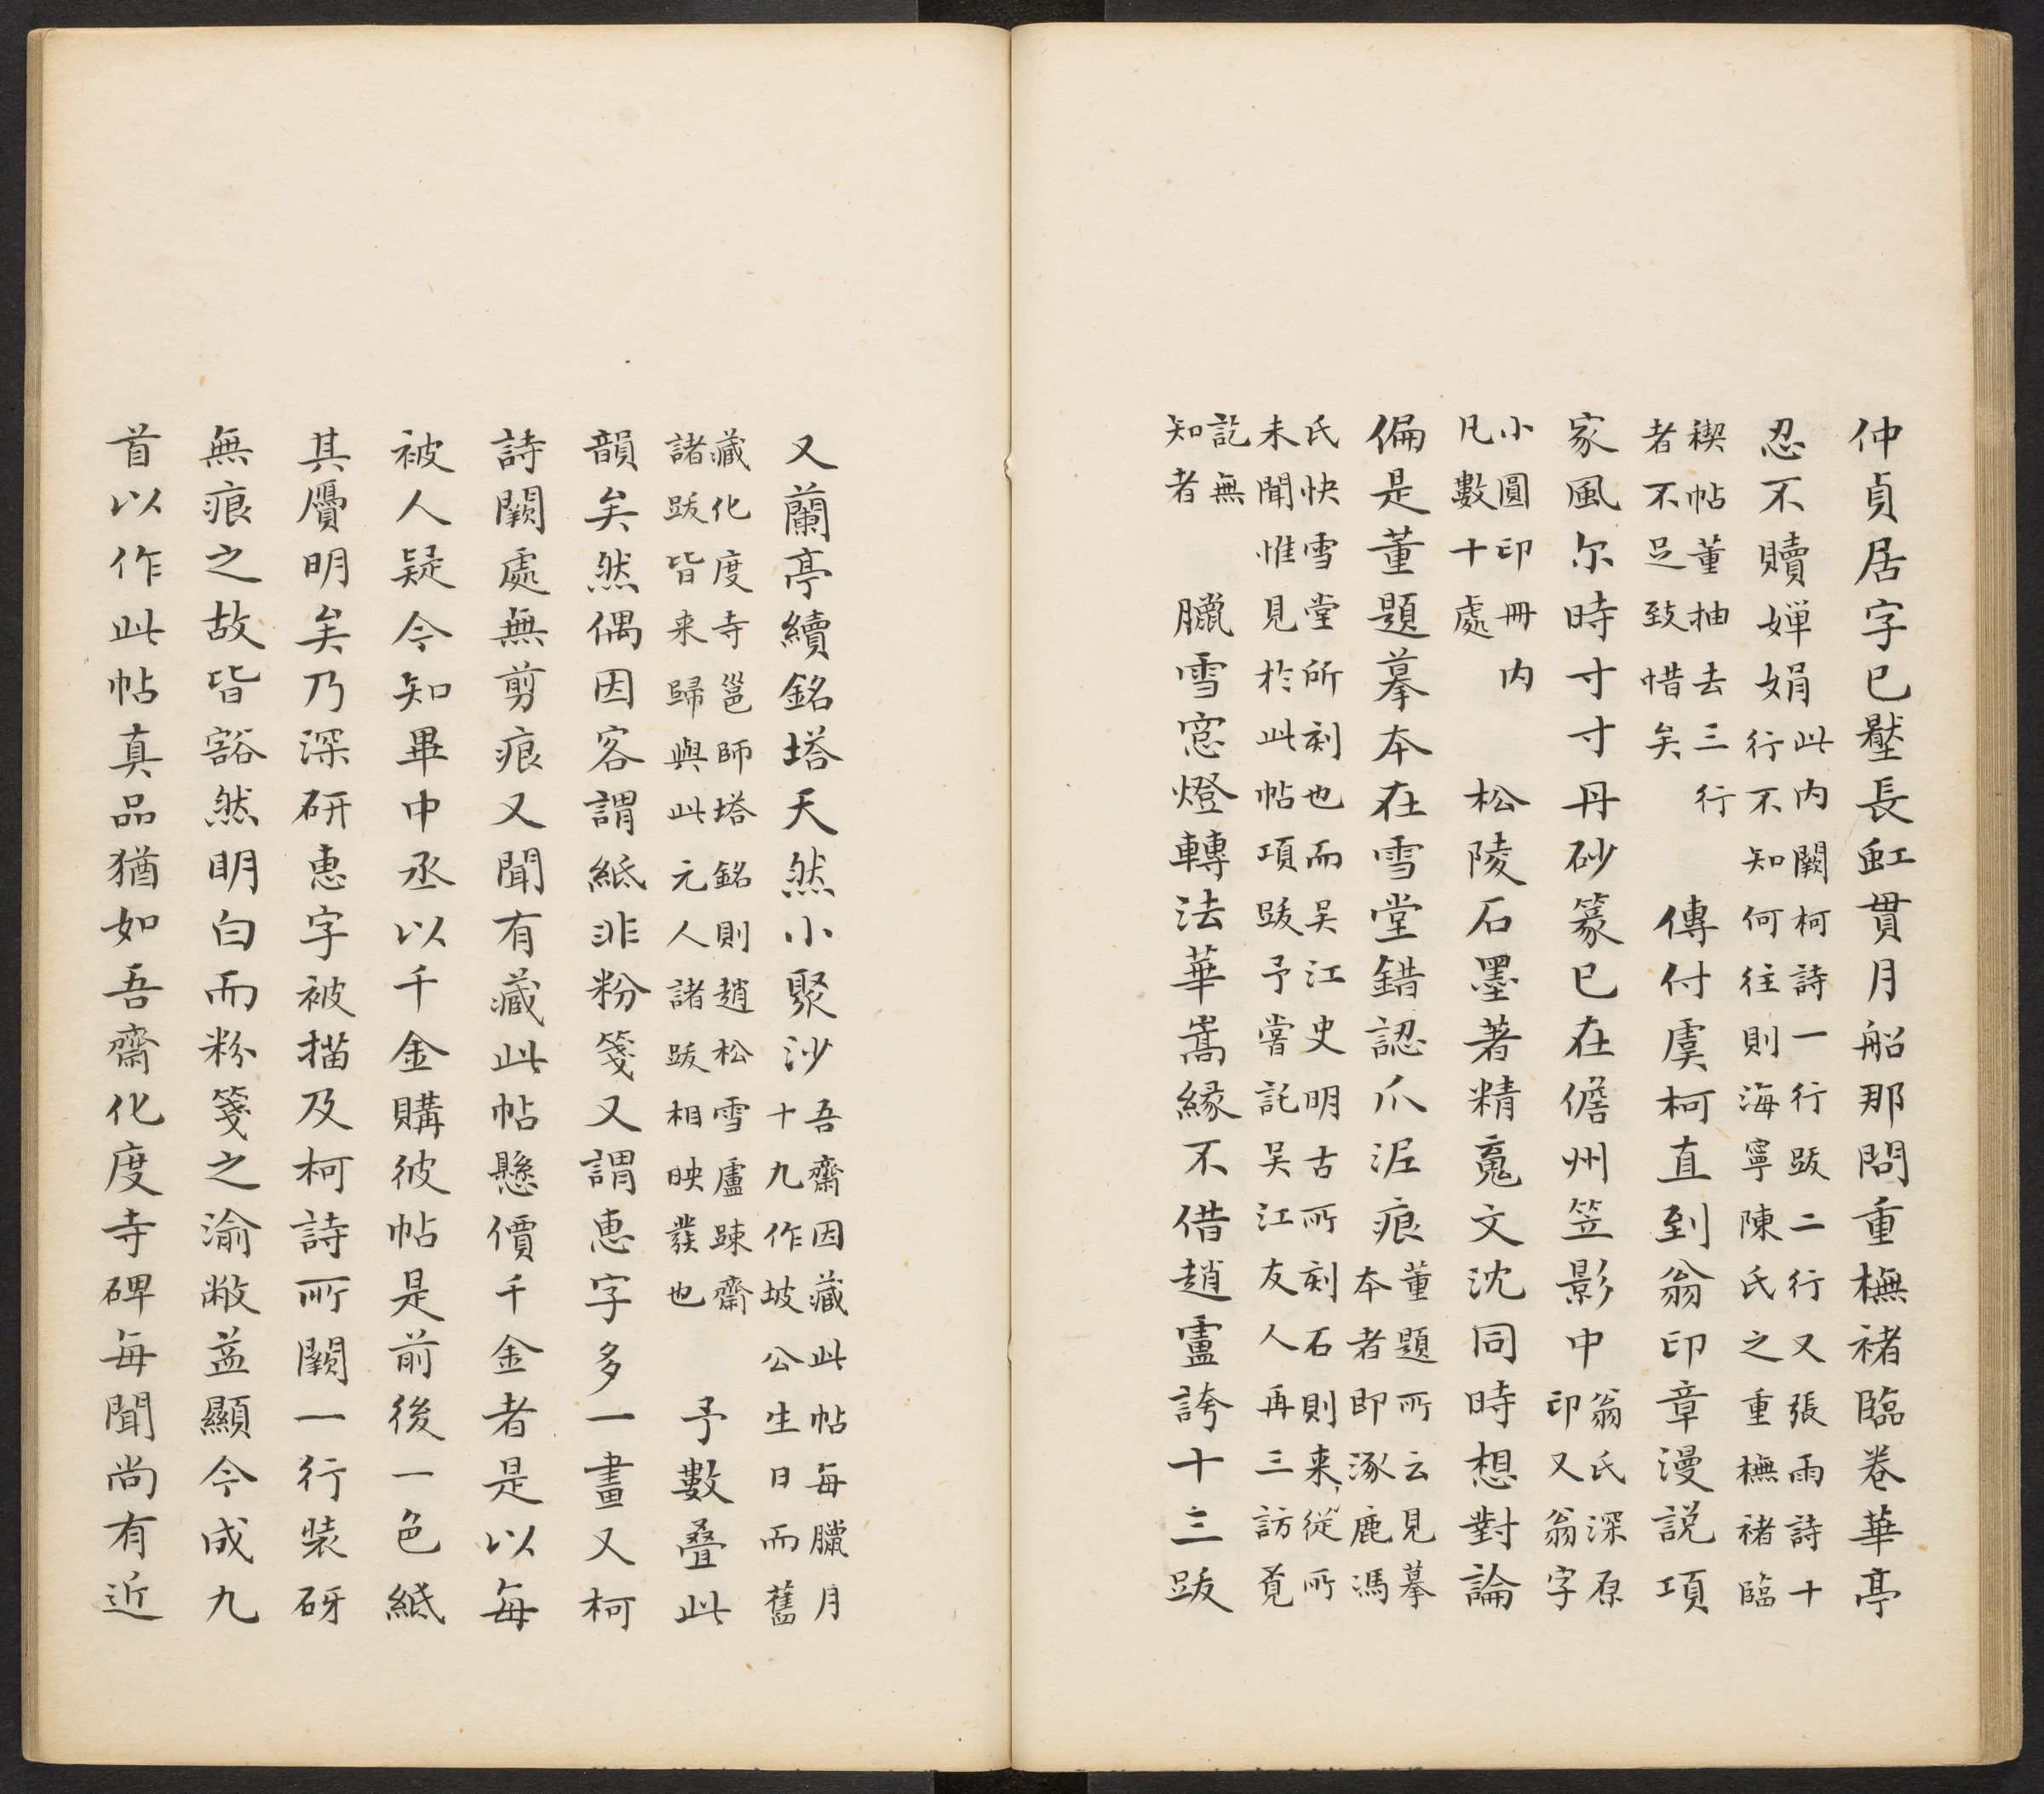 仲貞居字已壓長虹貫月船那問重橅褚臨卷華亭
忍不贖嬋娟此内闕柯詩一行跋二行又張雨詩十行不知何往則海寧陳氏之重橅褚臨
禊帖董抽去三行者不足致惜矣傳付虞柯直到翁印章漫説項
家風尔時寸寸丹砂篆已在儋州笠影中翁氏深原印又翁字
小圓印冊内凡數十處松陵石墨著精蒐文沈同時想對論
偏是董題摹本在雪堂錯認爪泥痕董題所云見摹本者即涿鹿馮
氏快雪堂所刻也而吴江史明古所刻石則来從所未聞惟見於此帖項跋予嘗託吴江友人再三訪覓
訖無知者臘雪窓燈轉法華嵩緣不借趙盧誇十三跋
又蘭亭續銘塔天然小聚沙吾齋因藏此帖每臘月十九作坡公生日而舊
藏化度寺邕師塔銘則趙松雪盧踈齋諸跋皆来歸與此元人諸跋相映發也予數叠此
韻矣然偶因客謂紙非粉箋又謂惠字多一畫又柯
詩闕處無剪痕又聞有藏此帖懸價千金者是以每
被人疑今知畢中丞以千金購彼帖是前後一色紙
其贗明矣乃深研惠字被描及柯詩所闕一行装砑
無痕之故皆豁然明白而粉箋之渝敝益顯今成九
首以作此帖真品猶如吾齋化度寺碑每聞尚有近